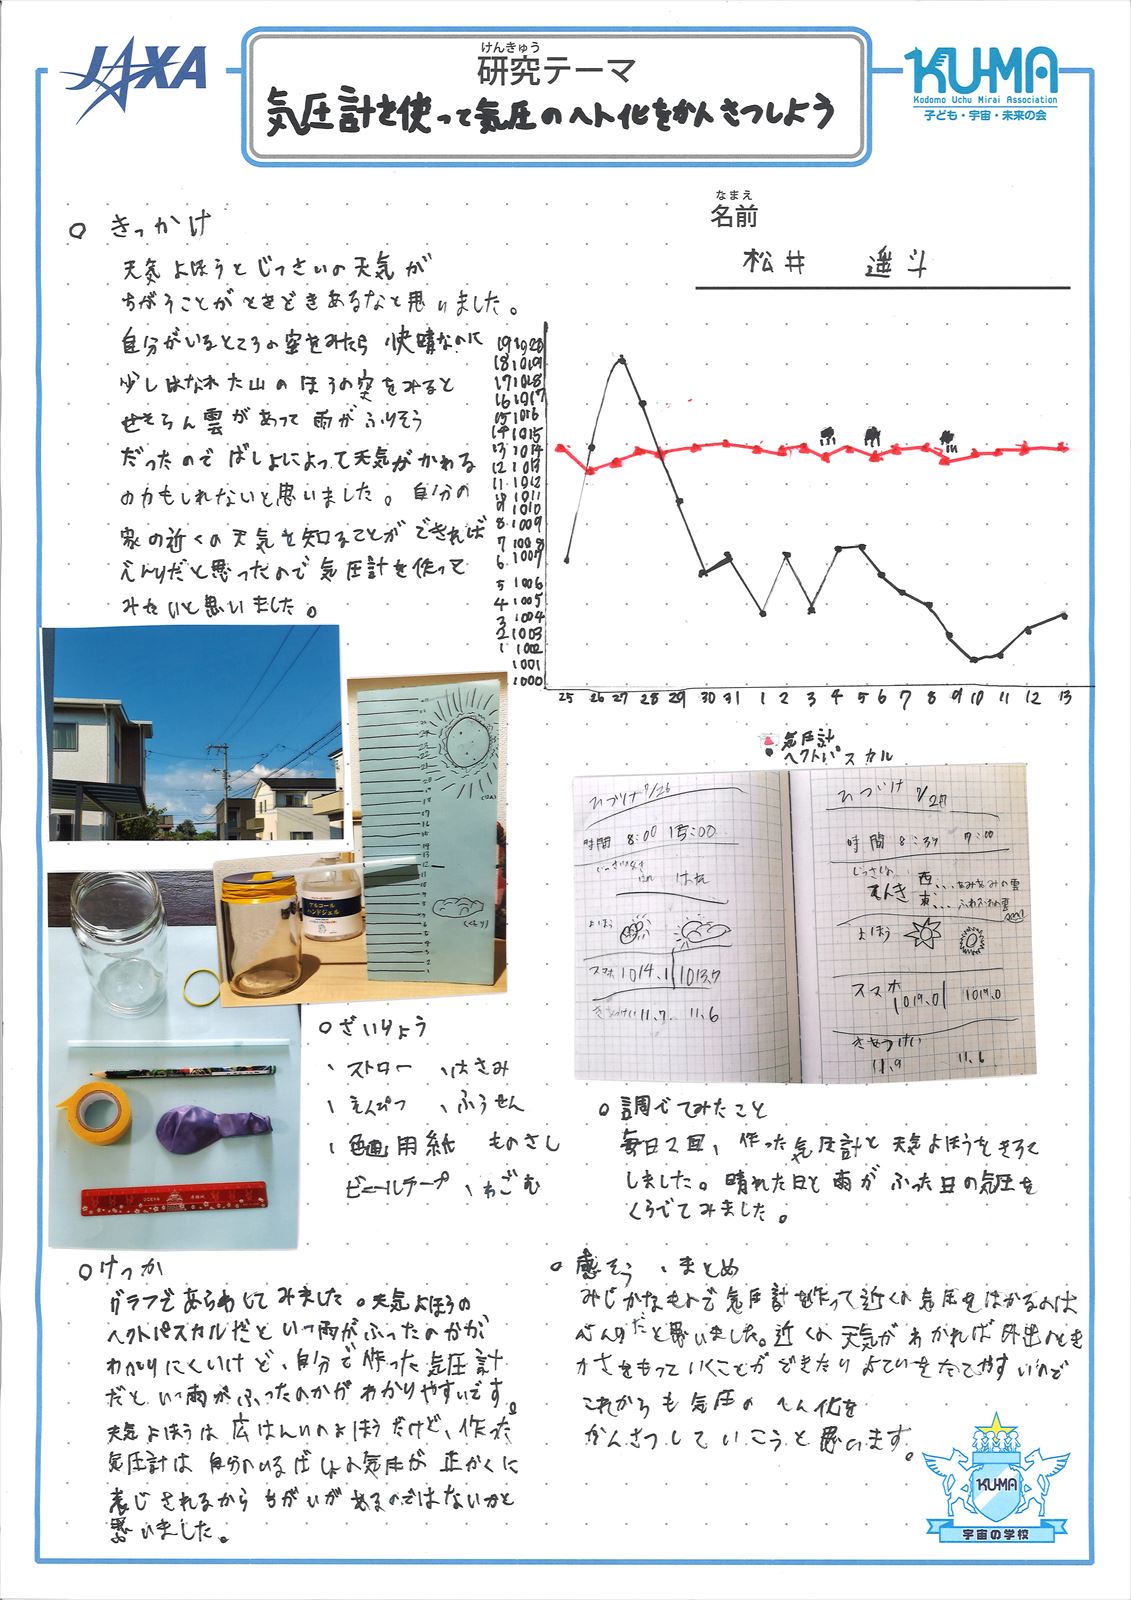 JAXA
けんきゅう
研究テーマ
気圧計を使って気圧のヘト化をかんさつしよう
KU-MA
Kodomo Uchu Mirai Association
子ども・宇宙・未来の会
なまえ
名前
松井 遥斗
○ きっかけ
天気よほうとじっさいの天気が
ちがうことがときどきあるなと思いました。
自分がいるところの空をみたら 快晴なのに
少しはなれた山のほうの空をみると
せきらん雲があって雨がふりそう
だったのでばしょによって天気がかわる
のかもしれないと思いました。自分の
家の近くの天気を知ることができれば
べんりだと思ったので気圧計を作って
みたいと思いました。
19 1020
18 1019
17 1018
16 1017
15 1016
14 1015
13 1014
12 1013
11 1012
1011
9 1010
8 1009
7 1008
6 1007
5 1006
4 1005
3 1004
2 1003
1 1002
1001
1000
25 26 27 28 29 30 31 1 2 3 4 5 6 7 8 9 10 11 12 13
気圧計
ヘクトパスカル
アルコール
ハンドジェル
(くもり)
ひづけ 7/26
時間 8:00 15:00
はれ はれ
よほう
スマホ 1014.1 1013.7
11.7 11.6
ひづけ 7/27
時間 8:37 7:00
じっさいの
てんき 西
東
よほう
スマホ
1019.0 1019.0
きあつけい
11.9 11.6
○ ざいりょう
、ストロー 、はさみ
、えんぴつ 、ふうせん
、色画用紙 ものさし
ビニールテープ 、わごむ
○ 調べてみたこと
毎日2回、作った気圧計と天気よほうをきろく
しました。晴れた日と雨がふった日の気圧を
くらべてみました。
○ けっか
グラフであらわしてみました。天気よほうの
ヘクトパスカルだといつ雨がふったのかが
わかりにくいけど、自分で作った気圧計
だといつ雨がふったのかがわかりやすいです。
天気よほうは広はんいのよほうだけど、作った
気圧計は自分のいるばしょの気圧が正かくに
表じされるからちがいがあるのではないかと
思いました。
○ 感そう、まとめ
みじかなもので気圧計を作って近くの気圧をはかるのは
べんりだと思いました。近くの天気がわかれば外出のとき
かさをもっていくことができたりよていをたてやすいので
これからも気圧のへん化を
かんさつしていこうと思います。
KU-MA
宇宙の学校